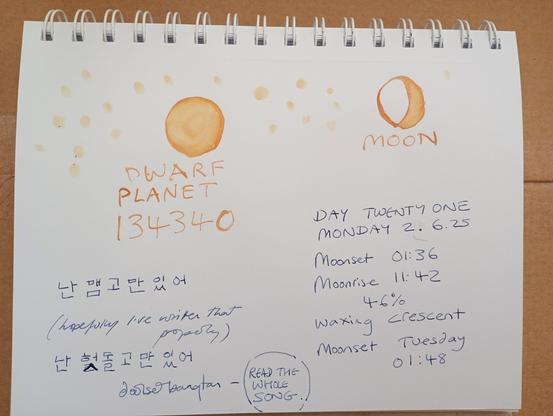 DWARF
PLANET
134340
MOON
DAY TWENTY ONE
MONDAY 2. 6.25
Moonset 01:36
Moonrise 11:42
46%
Waxing Crescent
Moonset Tuesday
01:48
난 맴고만 있어
(hopefully I've written that
properly)
난 헛돌고만 있어
READ THE
WHOLE
SONG.